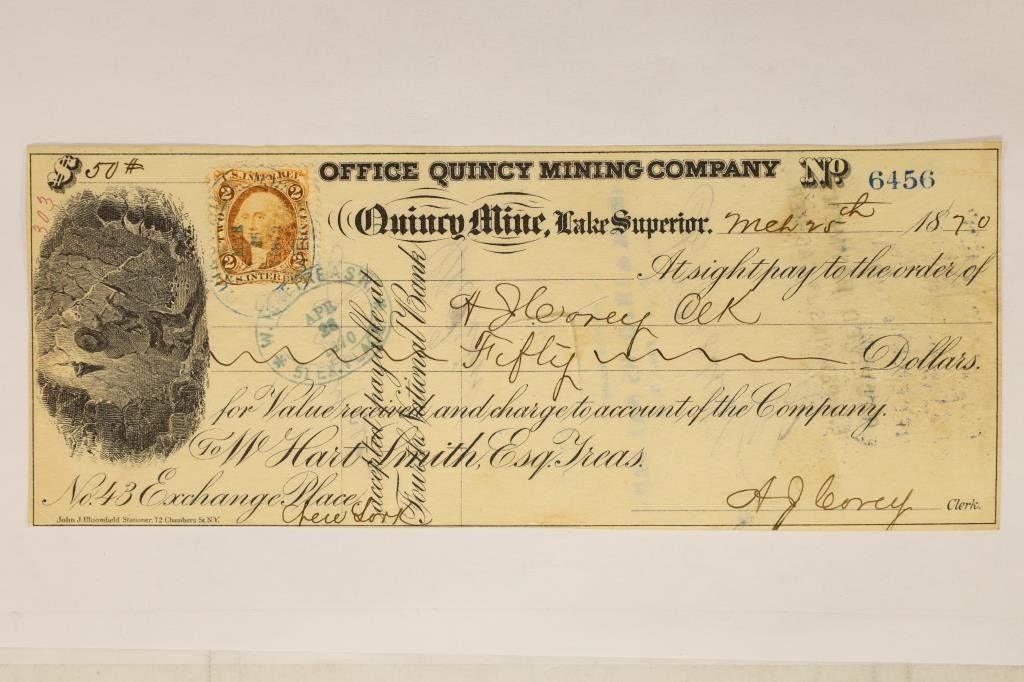 $ 50#
OFFICE QUINCY MINING COMPANY No 6456
303
Quincy Mine, Lake Superior. Mch 25th 1870
At sight pay to the order of
A J Corey Clk
Fifty Dollars.
for Value received and charge to account of the Company.
To Wm Hart Smith, Esq. Treas.
No. 43 Exchange Place,
New York
A J Corey Clerk.
John J. Bloomfield Stationer, 72 Chambers St. N.Y.
Accepted payable at
Fourth National Bank
U.S. INTER. REV.
2 2
TWO
U.S. INTER.
2 2
W.
TREAS
APR
1870